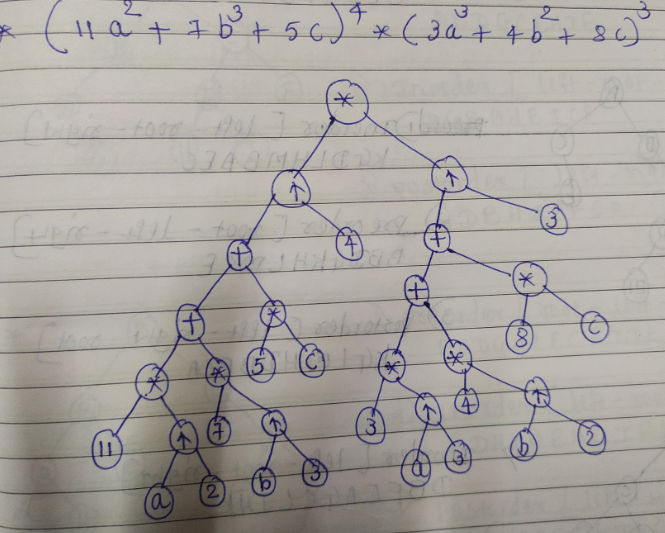 * (11a² + 7b³ + 5c)⁴ * (3a³ + 4b² + 8c)³
*
↑ ↑
+ 4 + 3
+ * + *
5 c 8 c
* * * *
11 ↑ 7 ↑ 3 ↑ 4 ↑
a 2 b 3 a 3 b 2